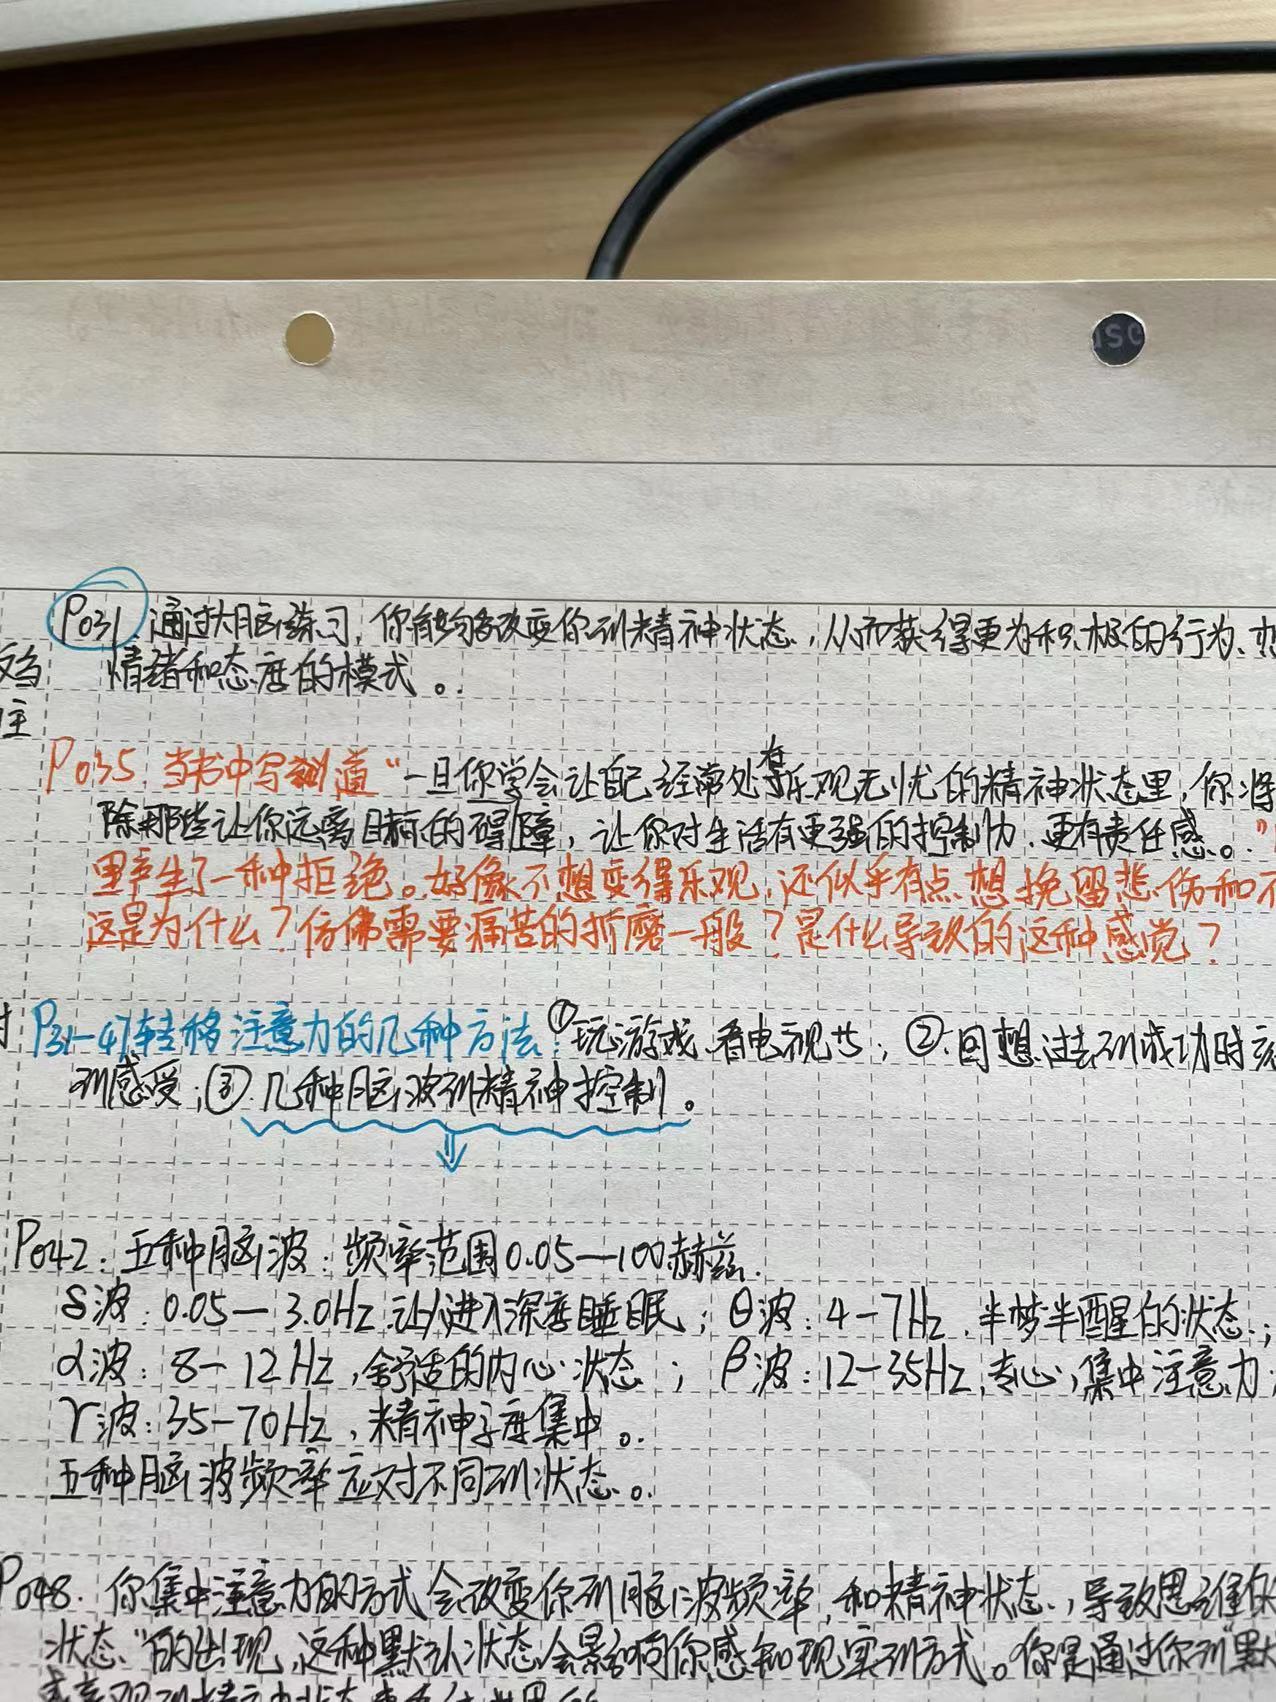 usc
P031. 通过大脑练习,你能够改变你的精神状态,从而获得更为积极的行为、
情绪和态度的模式。
主
P035. 当书中写到道“一旦你学会让自己经常处在乐观无忧的精神状态里,你将
除那些让你远离目标的碍障,让你对生活有更强的控制力.更有责任感。”
里产生了一种拒绝。好像不想变得乐观,还似乎有点想挽留悲伤和不
这是为什么?仿佛需要痛苦的折磨一般?是什么导致的这种感觉?
P31-47转移注意力的几种方法:①玩游戏、看电视书;②.回想过去的成功时刻
的感受;③.几种脑波的精神控制。
P042:五种脑波:频率范围0.05—100赫兹.
δ波:0.05—3.0Hz.让人进入深度睡眠;θ波:4-7Hz.半梦半醒的状态;
α波:8-12Hz,舒适的内心状态;β波:12-35Hz,专心,集中注意力
γ波:35-70Hz,精神高度集中。
五种脑波频率应对不同的状态。
P048.你集中注意力的方式会改变你的脑波频率,和精神状态,导致思维
状态”的出现,这种默认状态会影响你感知现实的方式。你是通过你的“默